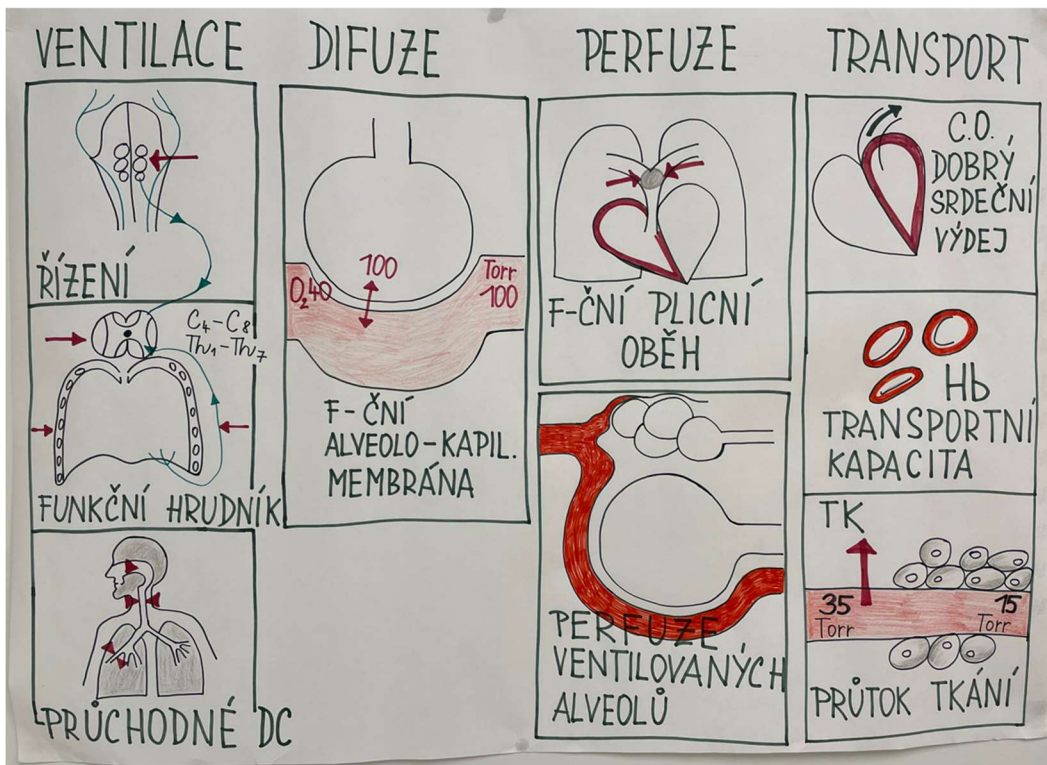 VENTILACE
ŘÍZENÍ
C4-C8
Th1-Th7
FUNKČNÍ HRUDNÍK
PRŮCHODNÉ DC
DIFUZE
100
O2 40
Torr
100
F-ČNÍ
ALVEOLO-KAPIL.
MEMBRÁNA
PERFUZE
F-ČNÍ PLICNÍ
OBĚH
PERFUZE
VENTILOVANÝCH
ALVEOLŮ
TRANSPORT
C.O.
DOBRÝ
SRDEČNÍ
VÝDEJ
Hb
TRANSPORTNÍ
KAPACITA
TK
35
Torr
15
Torr
PRŮTOK TKÁNÍ